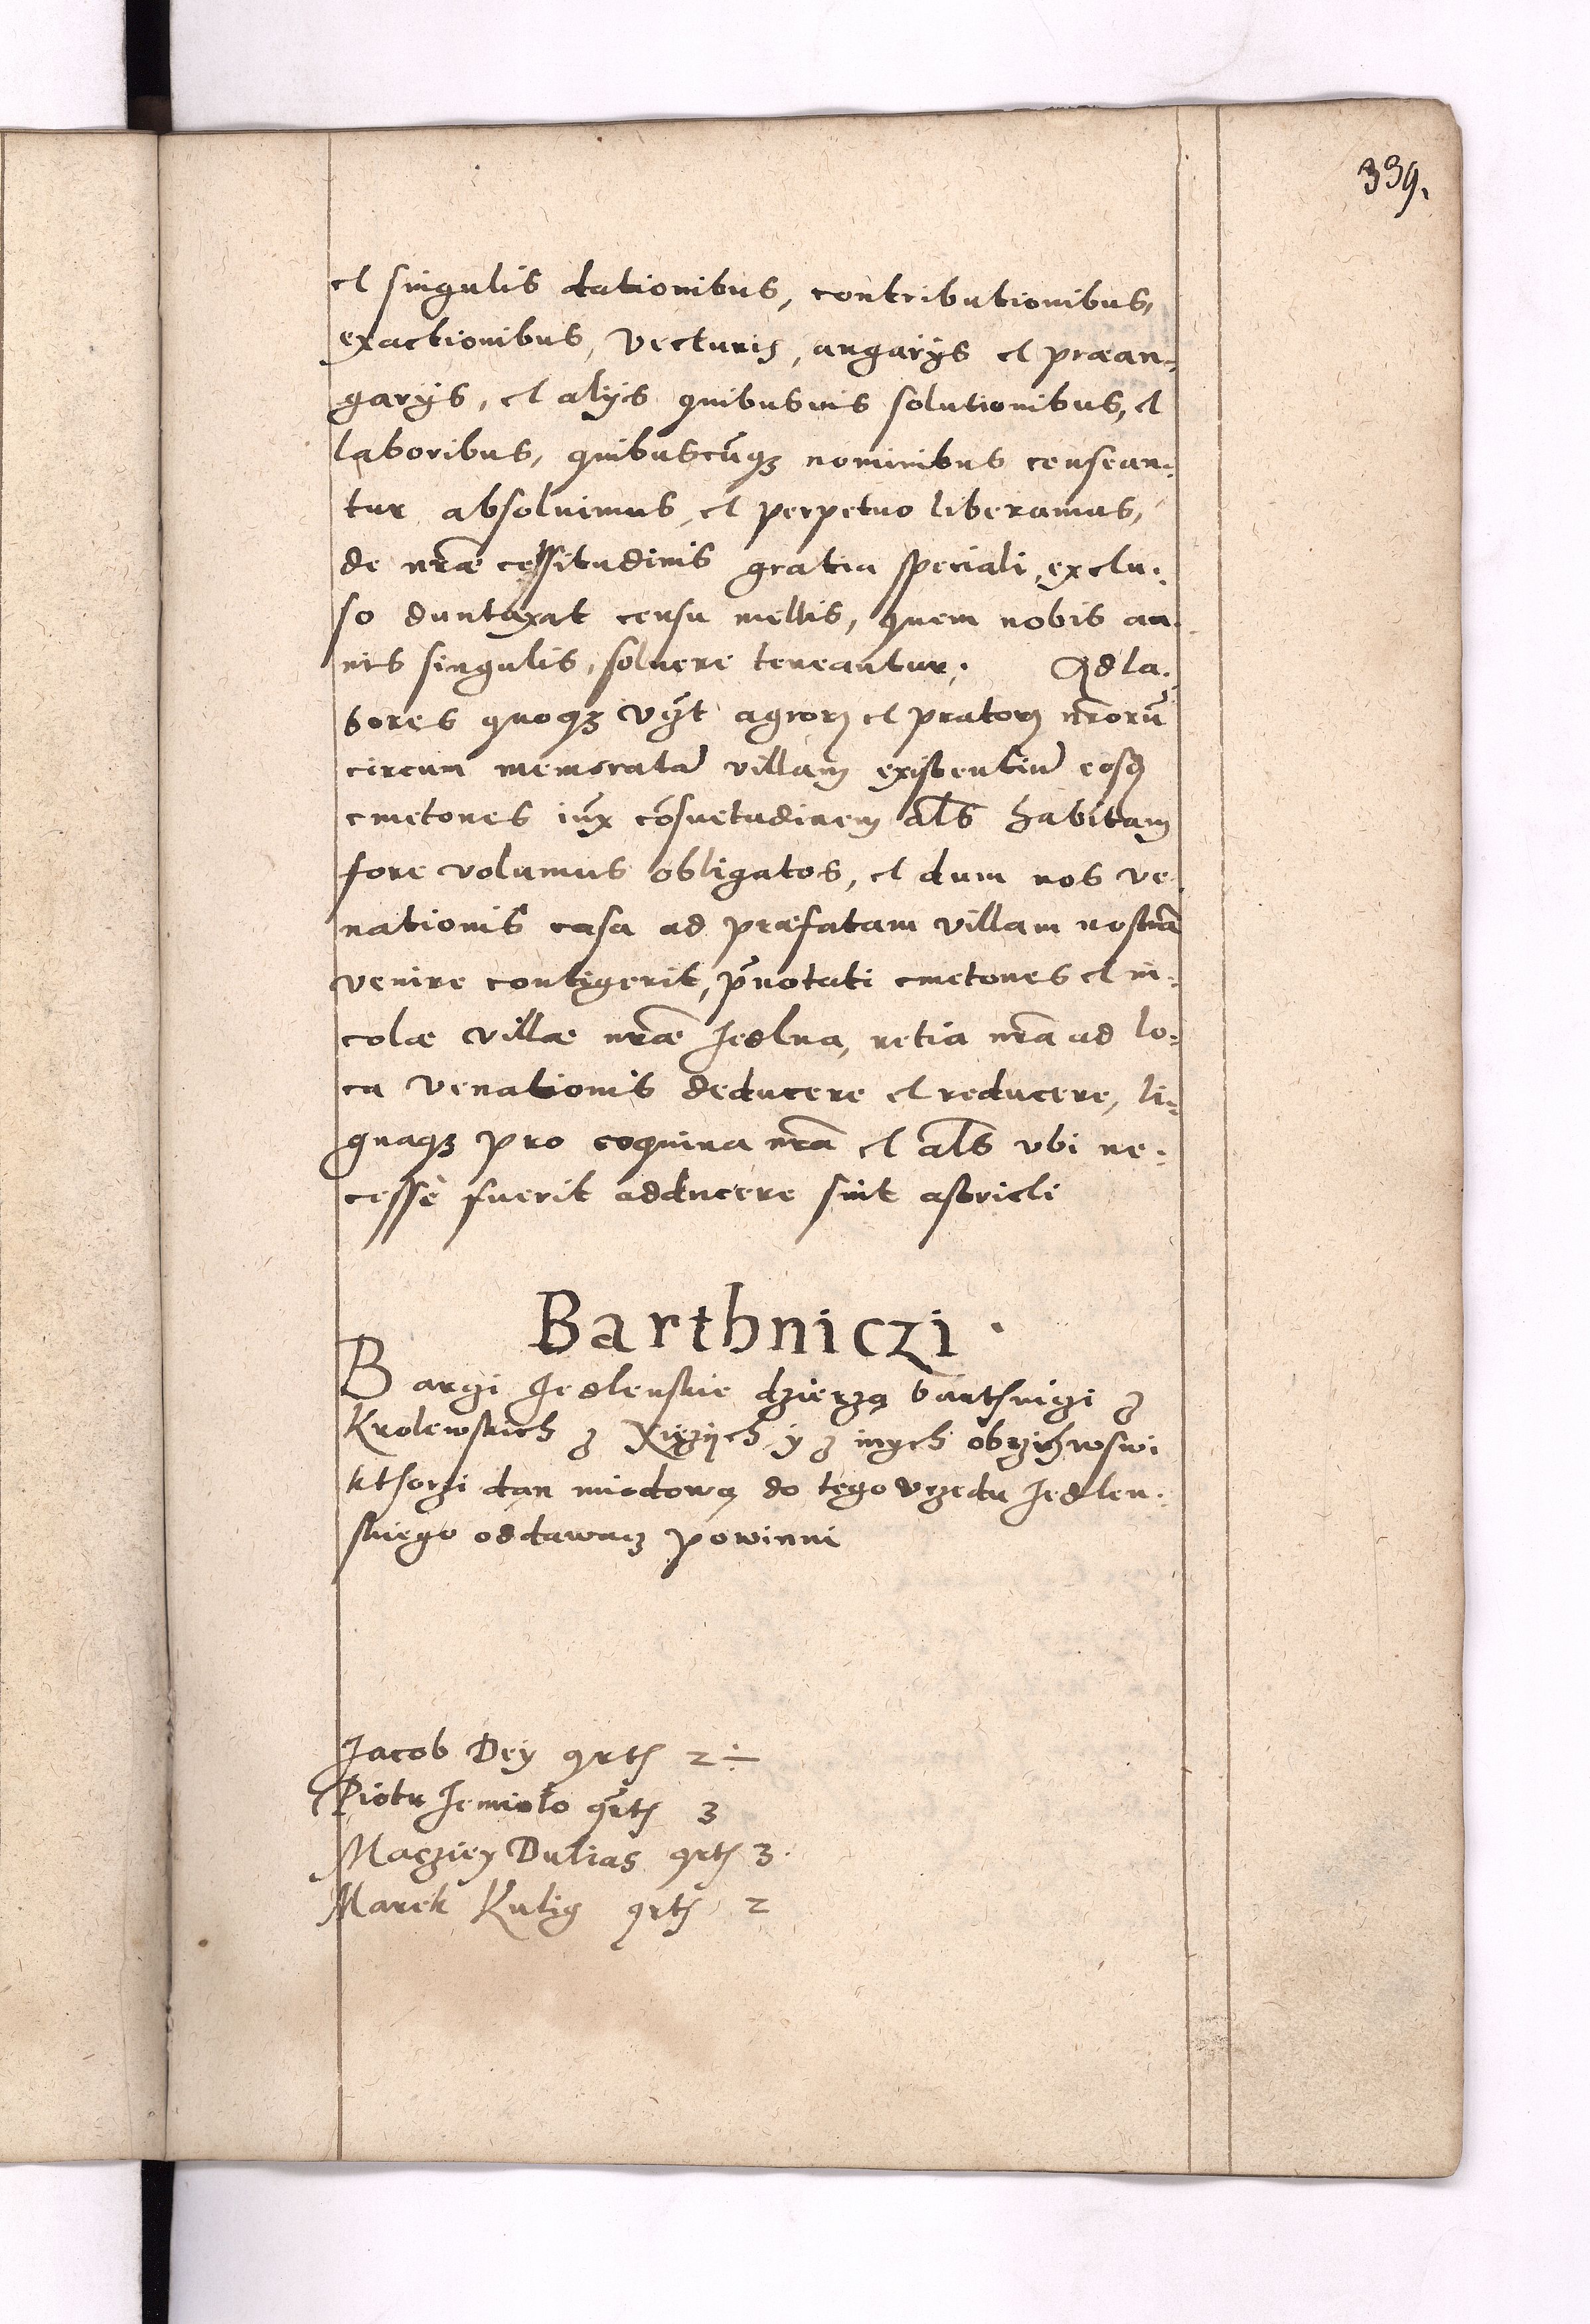 339.
et singulis dationibus, contributionibus,
exactionibus, vecturis, angarijs et præan-
garijs, et alijs quibusuis solutionibus, et
laboribus, quibuscūqȝ nominibus censean-
tur absoluimus, et perpetuo liberamus,
de nr̃æ celsitudinis gratia speciali, exclu-
so duntaxat censu mellis, quem nobis an-
nis singulis, soluere teneantur. Ad la-
bores quoqȝ agrorꝫ et pratorꝫ nr̃orū
circum memoratā villam existentiū eosꝫ
cmetones iux̃ cōsuetudinem al̃s habitam
fore volumus obligatos, et dum nos ve-
nationis casa ad præfatam villam nostrā
venire contigerit, p̃notati cmetones et in-
colæ villæ nr̃æ Jedlna, retia nr̃a ad lo-
ca venationis deducere et reducere, li-
gnaqȝ pro coquina nr̃a et al̃s vbi ne-
cesse fuerit adducere sint astricti
Barthniczi.
Barczi Jedlenskie dzierzą barthniczi z
Krolewskich z Xiężych y z inych
kthorzi dan miodową do tego vrzędu Jedlen-
skiego oddawacz powinni
Jacob Dey qrth 2 ÷
Piotr Jemioło qrth 3
Macziey Dulias qrth 3.
Marek Kulig qrth 2